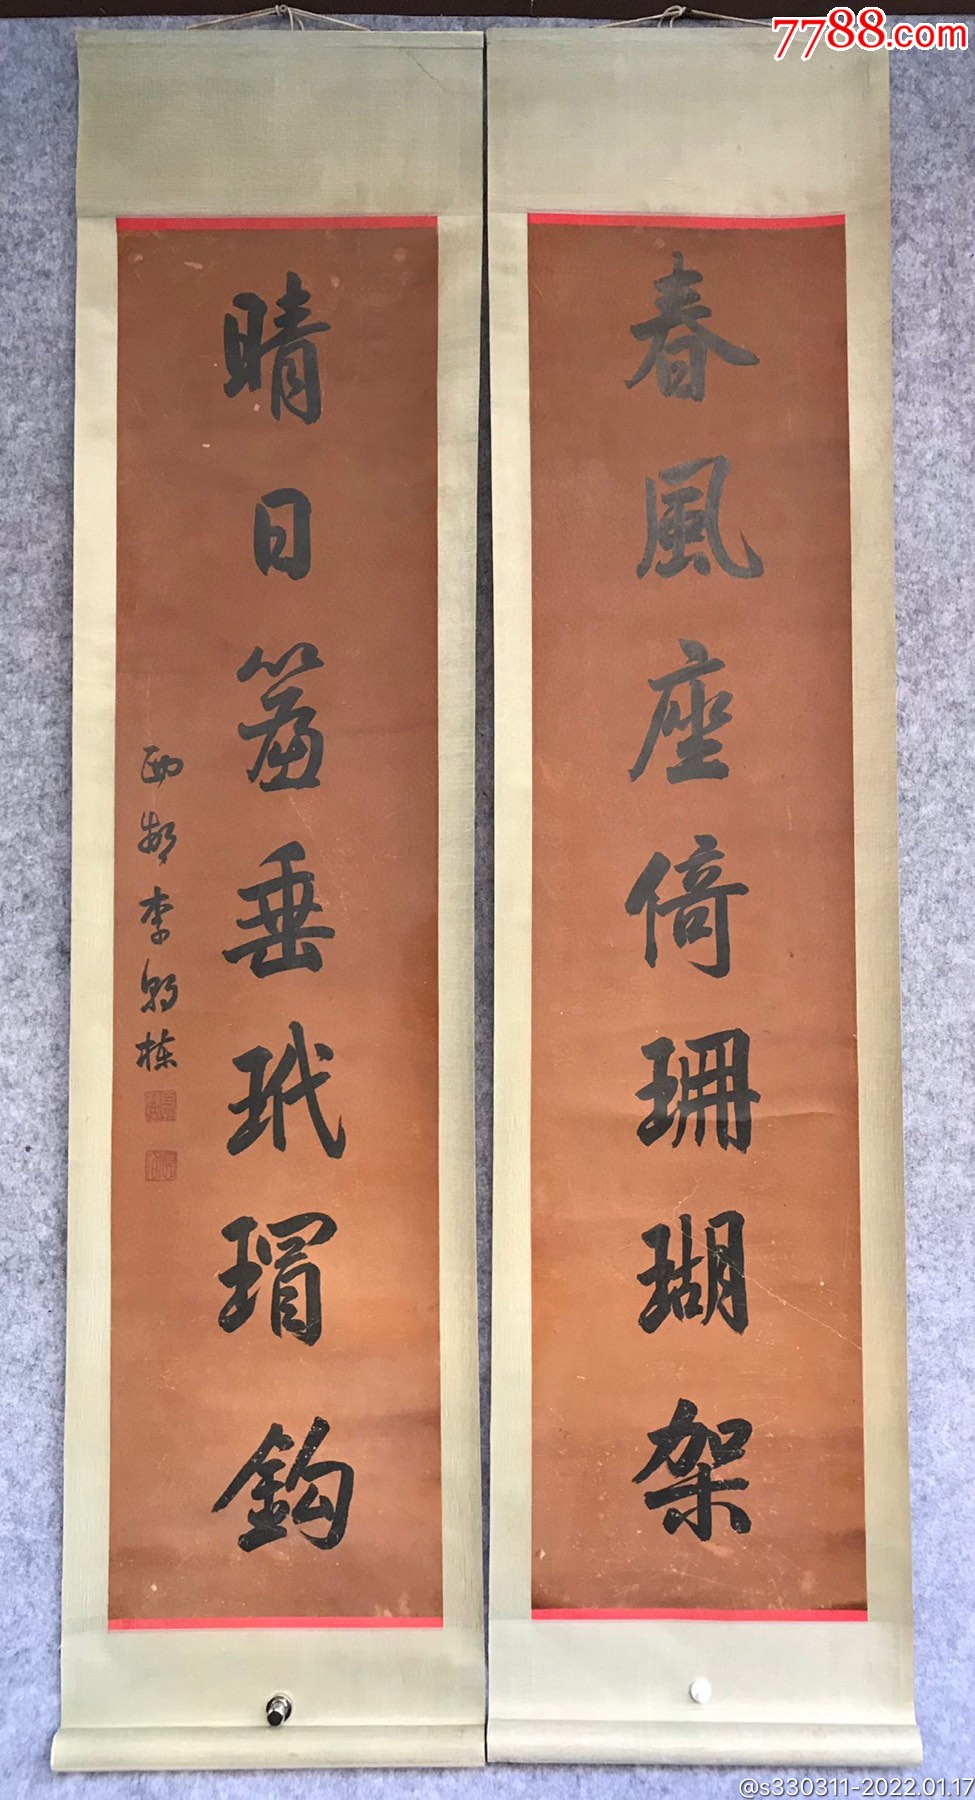 春風座倚珊瑚架
晴日簾垂玳瑁鈎
李
7788.com
@s330311-2022.01.17